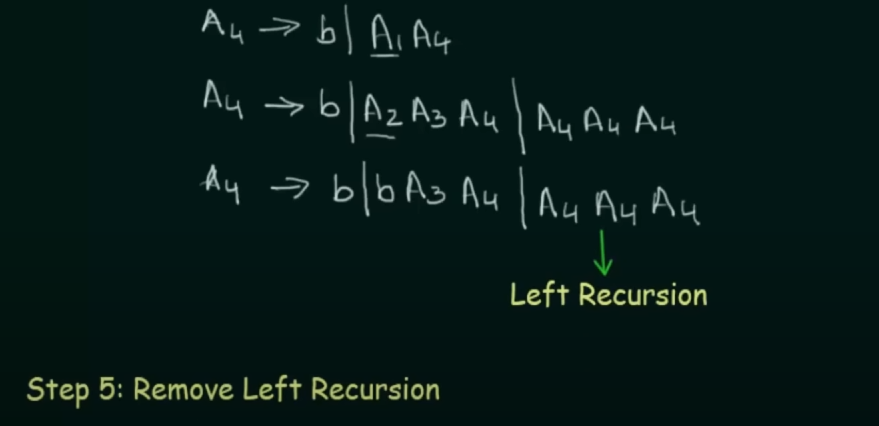 A₄ → b | A₁ A₄
A₄ → b | A₂ A₃ A₄ | A₄ A₄ A₄
A₄ → b | b A₃ A₄ | A₄ A₄ A₄
Left Recursion
Step 5: Remove Left Recursion